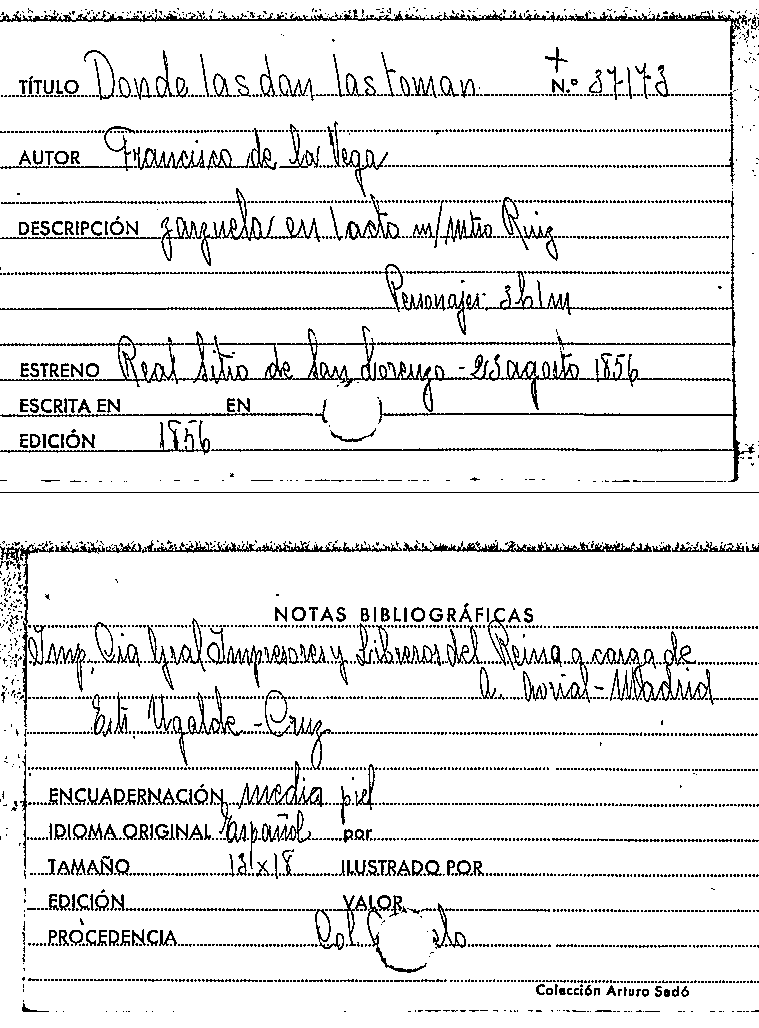 TÍTULO Donde las dan las toman N.º 37173
AUTOR Francisco de la Vega
DESCRIPCIÓN zarzuela en 1 acto m/ mtro Ruiz
Personajes: 3h 1m
ESTRENO Real Sitio de San Lorenzo - 23 agosto 1856
ESCRITA EN EN
EDICIÓN 1856
NOTAS BIBLIOGRÁFICAS
Imp. Cia Gral Impresores y Libreros del Reino a cargo de
A. Avrial - Madrid
Estr. Ugalde - Cruz
ENCUADERNACIÓN media piel
IDIOMA ORIGINAL Español por
TAMAÑO 13 x 18 ILUSTRADO POR
EDICIÓN VALOR
PROCEDENCIA Col.
Colección Arturo Sedó